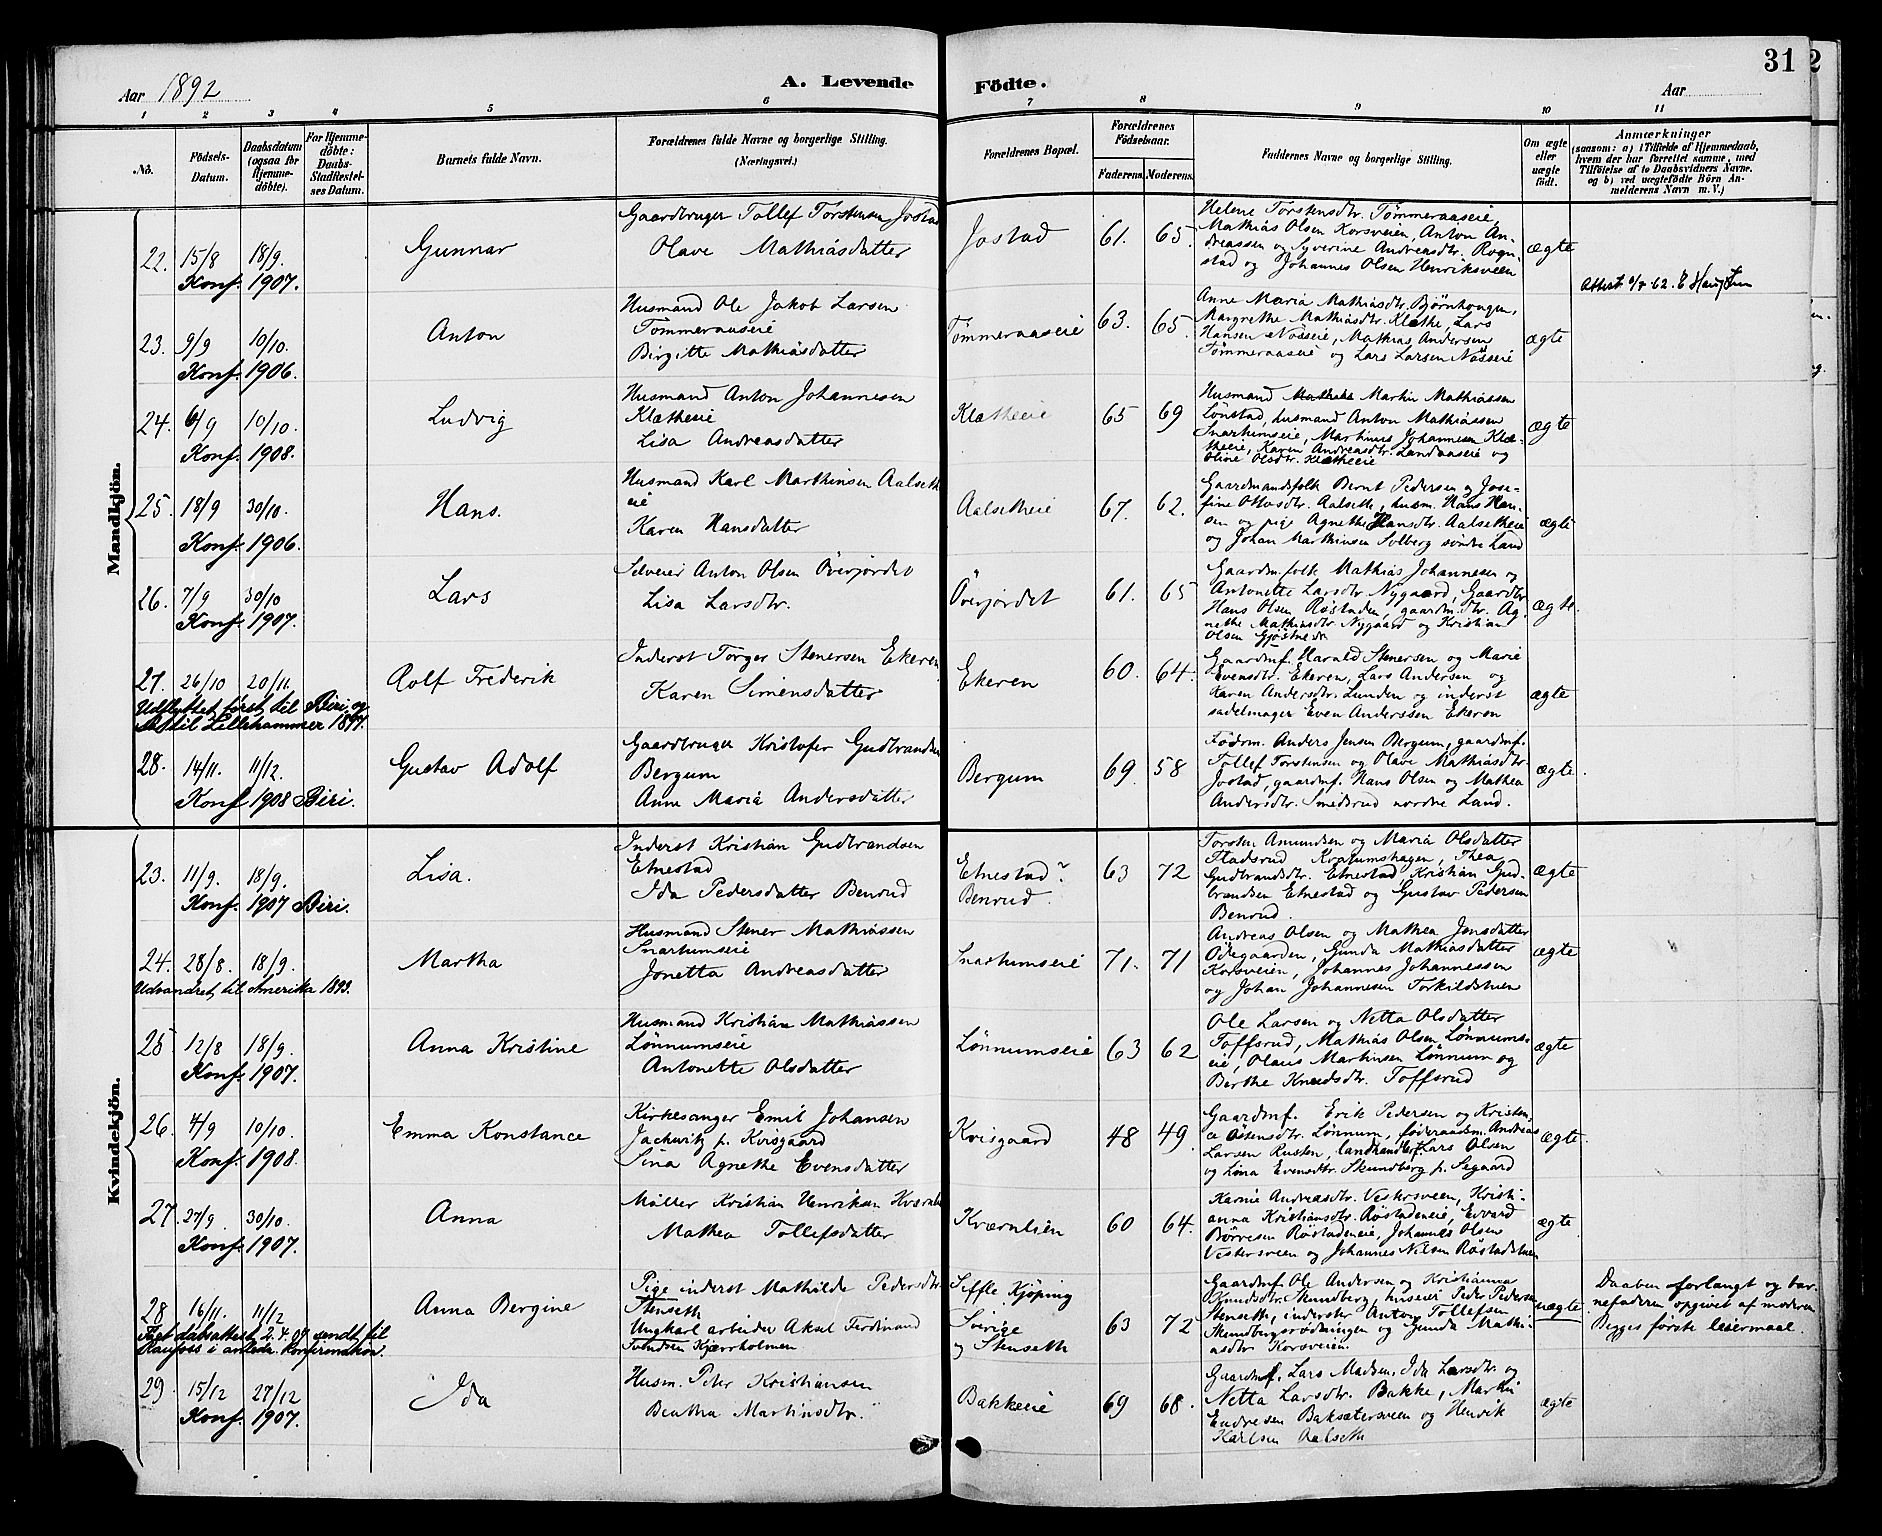 Aar 1892
A. Levende Fødte.
31
Aar
1 2 3 4 5 6 7 8 9 10 11
No.
Fødsels-Datum.
Daabsdatum (ogsaa for Hjemmedøbte).
For Hjemmedøbte: Daabs-Stadfæstelses Datum.
Barnets fulde Navn.
Forældrenes fulde Navne og borgerlige Stilling. (Næringsvei.)
Forældrenes Bopæl.
Forældrenes Fødselsaar.
Faderens. Moderens.
Faddernes Navne og borgerlige Stilling.
Om ægte eller uægte født.
Anmærkninger
(saasom: a) i Tilfælde af Hjemmedaab, hvem der har forrettet samme, med Tilføielse af to Daabsvidners Navne, og b) ved uægtefødte Børn Anmelderens Navn m. V.)
Mandkjön.
22. 15/8 18/9. Gunnar
Gaardbruger Tollef Torstensen Jostad
Olave Mathiasdatter
Jostad 61. 65.
Helene Torstensdtr. Tømmeraaseie,
Mathias Olsen Korsveien, Anton An-
dreassen og Syverine Andreasdtr. Rogn-
stad og Johannes Olsen Henriksveen
ægte
Konf. 1907.
23. 9/9 10/10. Anton
Husmand Ole Jakob Larsen
Tømmeraaseie
Birgitte Mathiasdatter
Tømmeraaseie 63. 65.
Anne Maria Mathiasdtr. Bjørnhaugen,
Margrethe Mathiasdtr. Klæthe, Lars
Hansen Nøsseie, Mathias Andersen
Tømmeraaseie og Lars Larsen Nøsseie
ægte
Konf. 1906.
24. 6/9 10/10. Ludvig
Husmand Anton Johannesen
Klætheeie
Lisa Andreasdatter
Klætheeie 65 69
Husmand Martin Mathiassen
Lønstad, husmand Anton Mathiassen
Snarhumseie, Martinus Johannesen Klæ-
theeie, Karen Andreasdtr. Landaaseie og
Oline Olsdtr. Klætheeie
ægte
Konf. 1908.
25. 18/9 30/10. Hans.
Husmand Karl Marthinsen Aalseth
eie
Karen Hansdatter
Aalsetheie 67. 62.
Gaardmandsfolk Bernt Pedersen og Jose-
fine Ottosdtr. Aalseth, husm. Hans Han-
sen og pige Agnethe Hansdtr. Aalsetheie
og Johan Marthinsen Solberg søndre Land
ægte
Konf. 1906.
26. 7/9 30/10 Lars
Selveier Anton Olsen Överjordet
Lisa Larsdtr.
Överjordet 61. 65
Gaardm.folk Mathias Johannesen og
Antonette Larsdtr Nygaard, Gaardbr
Hans Olsen Røstaden, gaardm.dtr. Ag-
nethe Mathiasdtr Nygaard og Kristian
Olsen
ægte.
Konf. 1907.
27. 26/10 20/11. Rolf Frederik
Inderst Torger Stenersen Ekeren
Karen Simensdatter
Ekeren 60. 64.
Gaardmf. Harald Stenersen og Marie
Evensdtr. Ekeren, Lars Andersen og
Karen Andersdtr. Lunden og inderst
sadelmager Even Anderssen Ekeren
ægte
Udflyttet først til Biri og
til Lillehammer 1897.
28. 14/11. 11/12. Gustav Adolf
Gaardbruger Kristofer Gudbrandsen
Bergum
Anne Maria Andersdatter
Bergum 69. 58
Födrm. Anders Jensen Bergum, gaardmf.
Tollef Torstensen og Olave Mathiasdtr.
Jostad, gaardmf. Hans Olsen og Mathea
Andersdtr. Smedsrud nordre Land.
ægte.
Konf 1908 Biri.
Kvindekjön.
23. 11/9. 18/9. Lisa.
Inderst Kristian Gudbrandsen
Etnestad
Ida Pedersdatter Benrud
Etnestad
Benrud. 63 72
Torsten Amundsen og Maria Olsdatter
Fladsrud Thea
Gudbrandsdtr. Etnestad, Kristian Gud-
brandsen Etnestad og Gustav Pedersen
Benrud.
ægte
Konf. 1907 Biri.
24. 28/8. 18/9. Martha
Husmand Stener Mathiassen
Snarhumseie
Jonetta Andreasdatter
Snarhumseie 71. 71
Andreas Olsen og Mathea Jensdatter
Ödegaarden, Gunda Mathiasdatter
Korsveien, Johannes Johannessen
og Johan Johannesen Torkildstuen
ægte
Udvandret til Amerika 1893.
25 12/8 18/9. Anna Kristine
Husmand Kristian Mathiassen
Lønnumseie
Antonette Olsdatter
Lønnumseie 63 62
Ole Larsen og Netta Olsdatter
Toffsrud, Mathias Olsen Lønnums-
eie, Olaus Martinsen Lønnum og
Berthe Knudsdtr. Toffsrud
ægte
Konf. 1907.
26. 4/9 10/10. Emma Konstance
Kirkesanger Emil Johansen
Jachwitz p. Kvisgaard
Sina Agnethe Evensdatter
Kvisgaard 48 49.
Gaardmf. Erik Pedersen og Kristen-
ce Östensdtr. Lønnum, føderaadsm. Andreas
Larsen Rusten, landhandler Lars Olsen
og Lina Evensdtr. Skundberg p. Segaard
ægte.
Konf. 1908.
27. 27/9. 30/10. Anna
Møller Kristian Henriksen Kværnli
Mathea Tollefsdatter
Kværnlien 60 64.
Karnie Andreasdtr. Vestersveen, Kristi-
anna Kristiansdtr. Røstadeneie, Edvard
Börresen Røstadeneie, Johannes Olsen
Vestersveen og Johannes Nilsen Røstadstuen
ægte
Konf. 1907.
28 16/11. 11/12 Anna Bergine
Pige inderst Mathilde Pedersdtr.
Stenseth
Ungkarl arbeider Aksel Ferdinand
Svendsen Kjærrholmen
Siffle Kjöping
Sverige
og Stenseth 63 72
Gaardmf. Ole Andersen og Kristianna
Knudsdtr. Skundberg, huseier Peder Pedersen
Stenseth, inderster Anton Tollefsen
Skundbergsrödningen og Gunda Mathi-
asdtr Korsveien.
uægte
Daaben forlangt og bar-
nefaderen opgivet af moderen
Begges første leiermaal.
daabsattest 2.4.07 sendt til
Raufoss i anledn. Konfirmation.
29. 15/12 27/12 Ida
Husm. Peter Kristiansen
Bertha Martinsdtr.
Bakkeeie 69 68.
Gaardmf. Lars Madsen, Ida Larsdtr. og
Netta Larsdtr. Bakke, Martin
Endresen Baksætersveen og Henrik
Karlsen Aalseth
ægte
Konf. 1907.